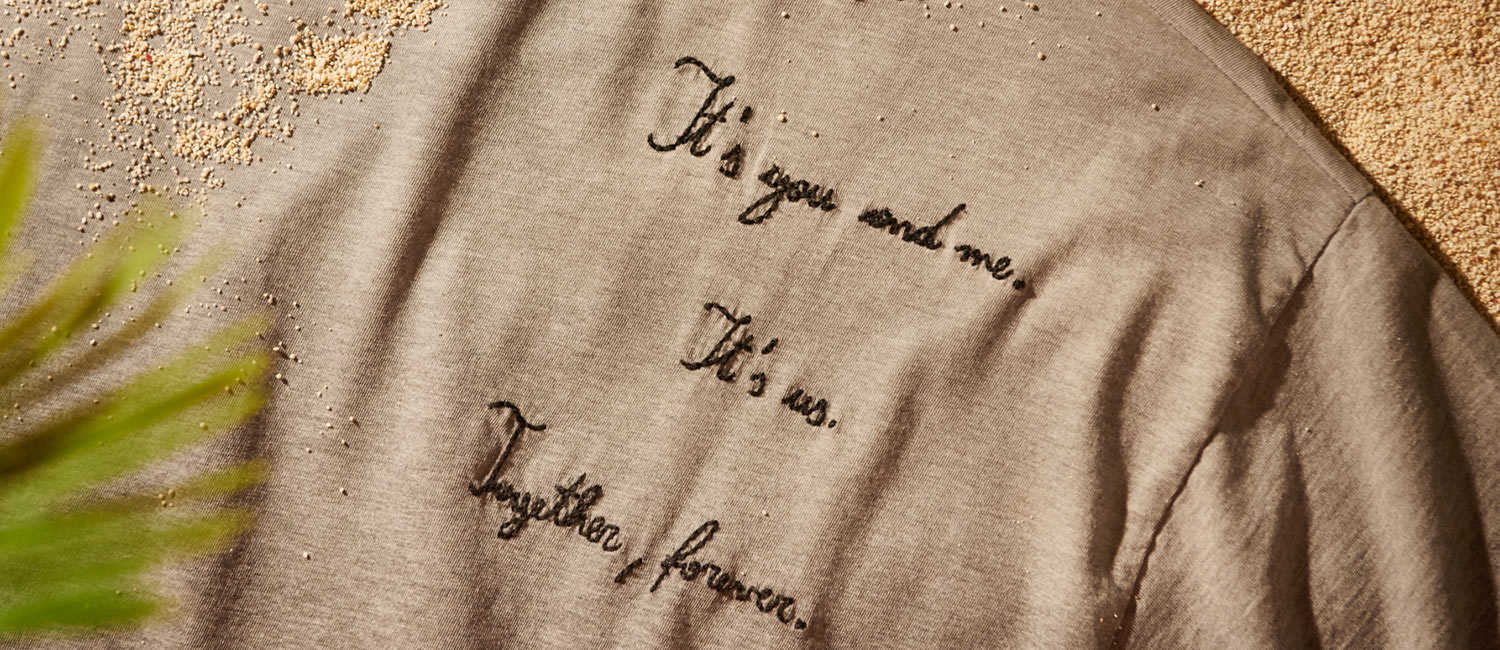 It's you and me.
It's us.
Together, forever.